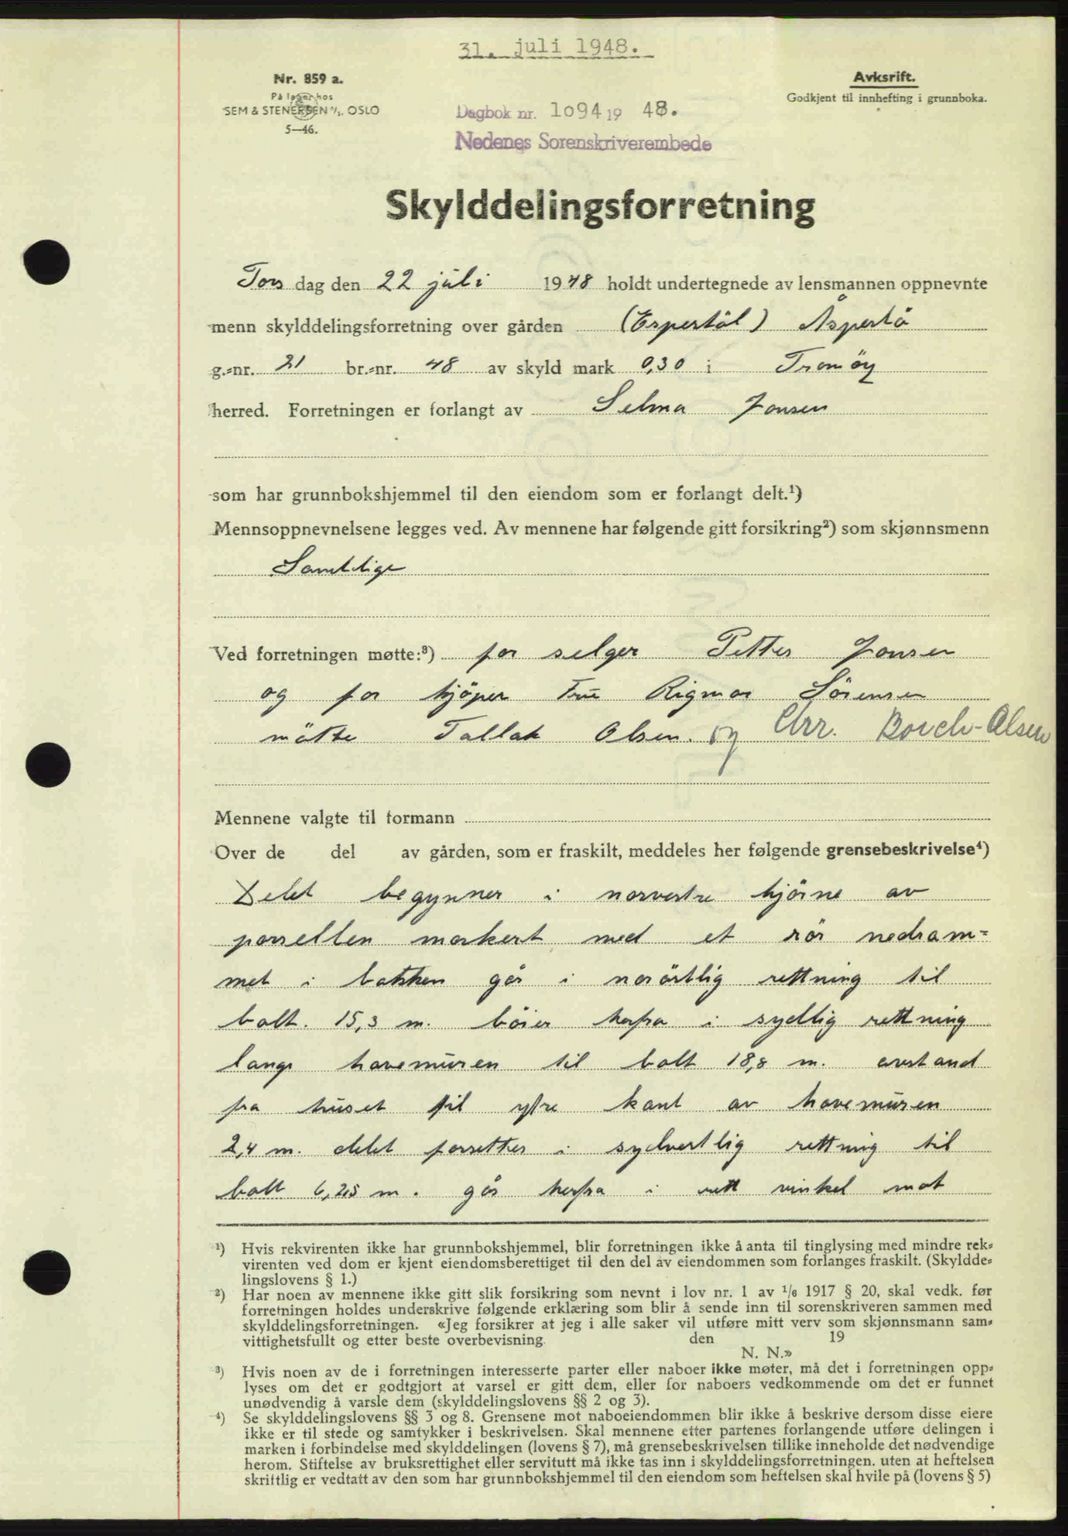 31. juli 1948.
Nr. 859 a.
På lager hos
SEM & STENERSEN A/S, OSLO
5—46.
Avskrift.
Godkjent til innhefting i grunnboka.
Dagbok nr. 1094 19 48.
Nedenes Sorenskriverembede
Skylddelingsforretning
Tors dag den 22 juli 1948 holdt undertegnede av lensmannen oppnevnte
menn skylddelingsforretning over gården (Espertöl) Åspertö
g.-nr. 21 br.-nr. 48 av skyld mark 0,30 i Tromöy
herred. Forretningen er forlangt av Selma Jonsen
som har grunnbokshjemmel til den eiendom som er forlangt delt.¹)
Mennsoppnevnelsene legges ved. Av mennene har følgende gitt forsikring²) som skjønnsmenn
Samtlige
Ved forretningen møtte:³) for selger Petter Jonsen
og for kjöper Fru Rigmor Sörensen
mötte Tallak Olsen. og Chr. Borch-Olsen
Mennene valgte til formann
Over de del av gården, som er fraskilt, meddeles her følgende grensebeskrivelse⁴)
Delet begynner i norvestre hjörne av
parsellen merkert med et rör nedram=
met i bakken går i norörtlig rettning til
bolt. 15,3 m. böier herfra i sydlig rettning
langs havemuren til bolt 18,8 m. avstand
fra huset til ytre kant av havemuren
2,4 m. delet forsetter i sydvestlig rettning til
bolt 6,25 m. går herfra i rett vinkel mot
¹) Hvis rekvirenten ikke har grunnbokshjemmel, blir forretningen ikke å anta til tinglysing med mindre rek-
virenten ved dom er kjent eiendomsberettiget til den del av eiendommen som forlanges fraskilt. (Skyldde-
lingslovens § 1.)
²) Har noen av mennene ikke gitt slik forsikring som nevnt i lov nr. 1 av 1/6 1917 § 20, skal vedk. før
forretningen holdes underskrive følgende erklæring som blir å sende inn til sorenskriveren sammen med
skylddelingsforretningen. «Jeg forsikrer at jeg i alle saker vil utføre mitt verv som skjønnsmann sam-
vittighetsfullt og etter beste overbevisning. den 19
N. N.»
³) Hvis noen av de i forretningen interesserte parter eller naboer ikke møter, må det i forretningen opp-
lyses om det er godtgjort at varsel er gitt dem, eller for naboers vedkommende om det er funnet
unødvendig å varsle dem (skylddelingslovens §§ 2 og 3).
⁴) Se skylddelingslovens §§ 3 og 8. Grensene mot naboeiendommen blir ikke å beskrive dersom disse eiere
ikke er til stede og samtykker i beskrivelsen. Skal mennene etter partenes forlangende utføre delingen i
marken i forbindelse med skylddelingen (lovens § 7), må grensebeskrivelsen tillike inneholde det nødvendige
herom. Stiftelse av bruksrettighet eller servitutt må ikke tas inn i skylddelingsforretningen. uten at heftelsen
skriftlig er vedtatt av den som har grunnbokshjemmel til den eiendom som heftelsen skal hvile på (lovens § 5)